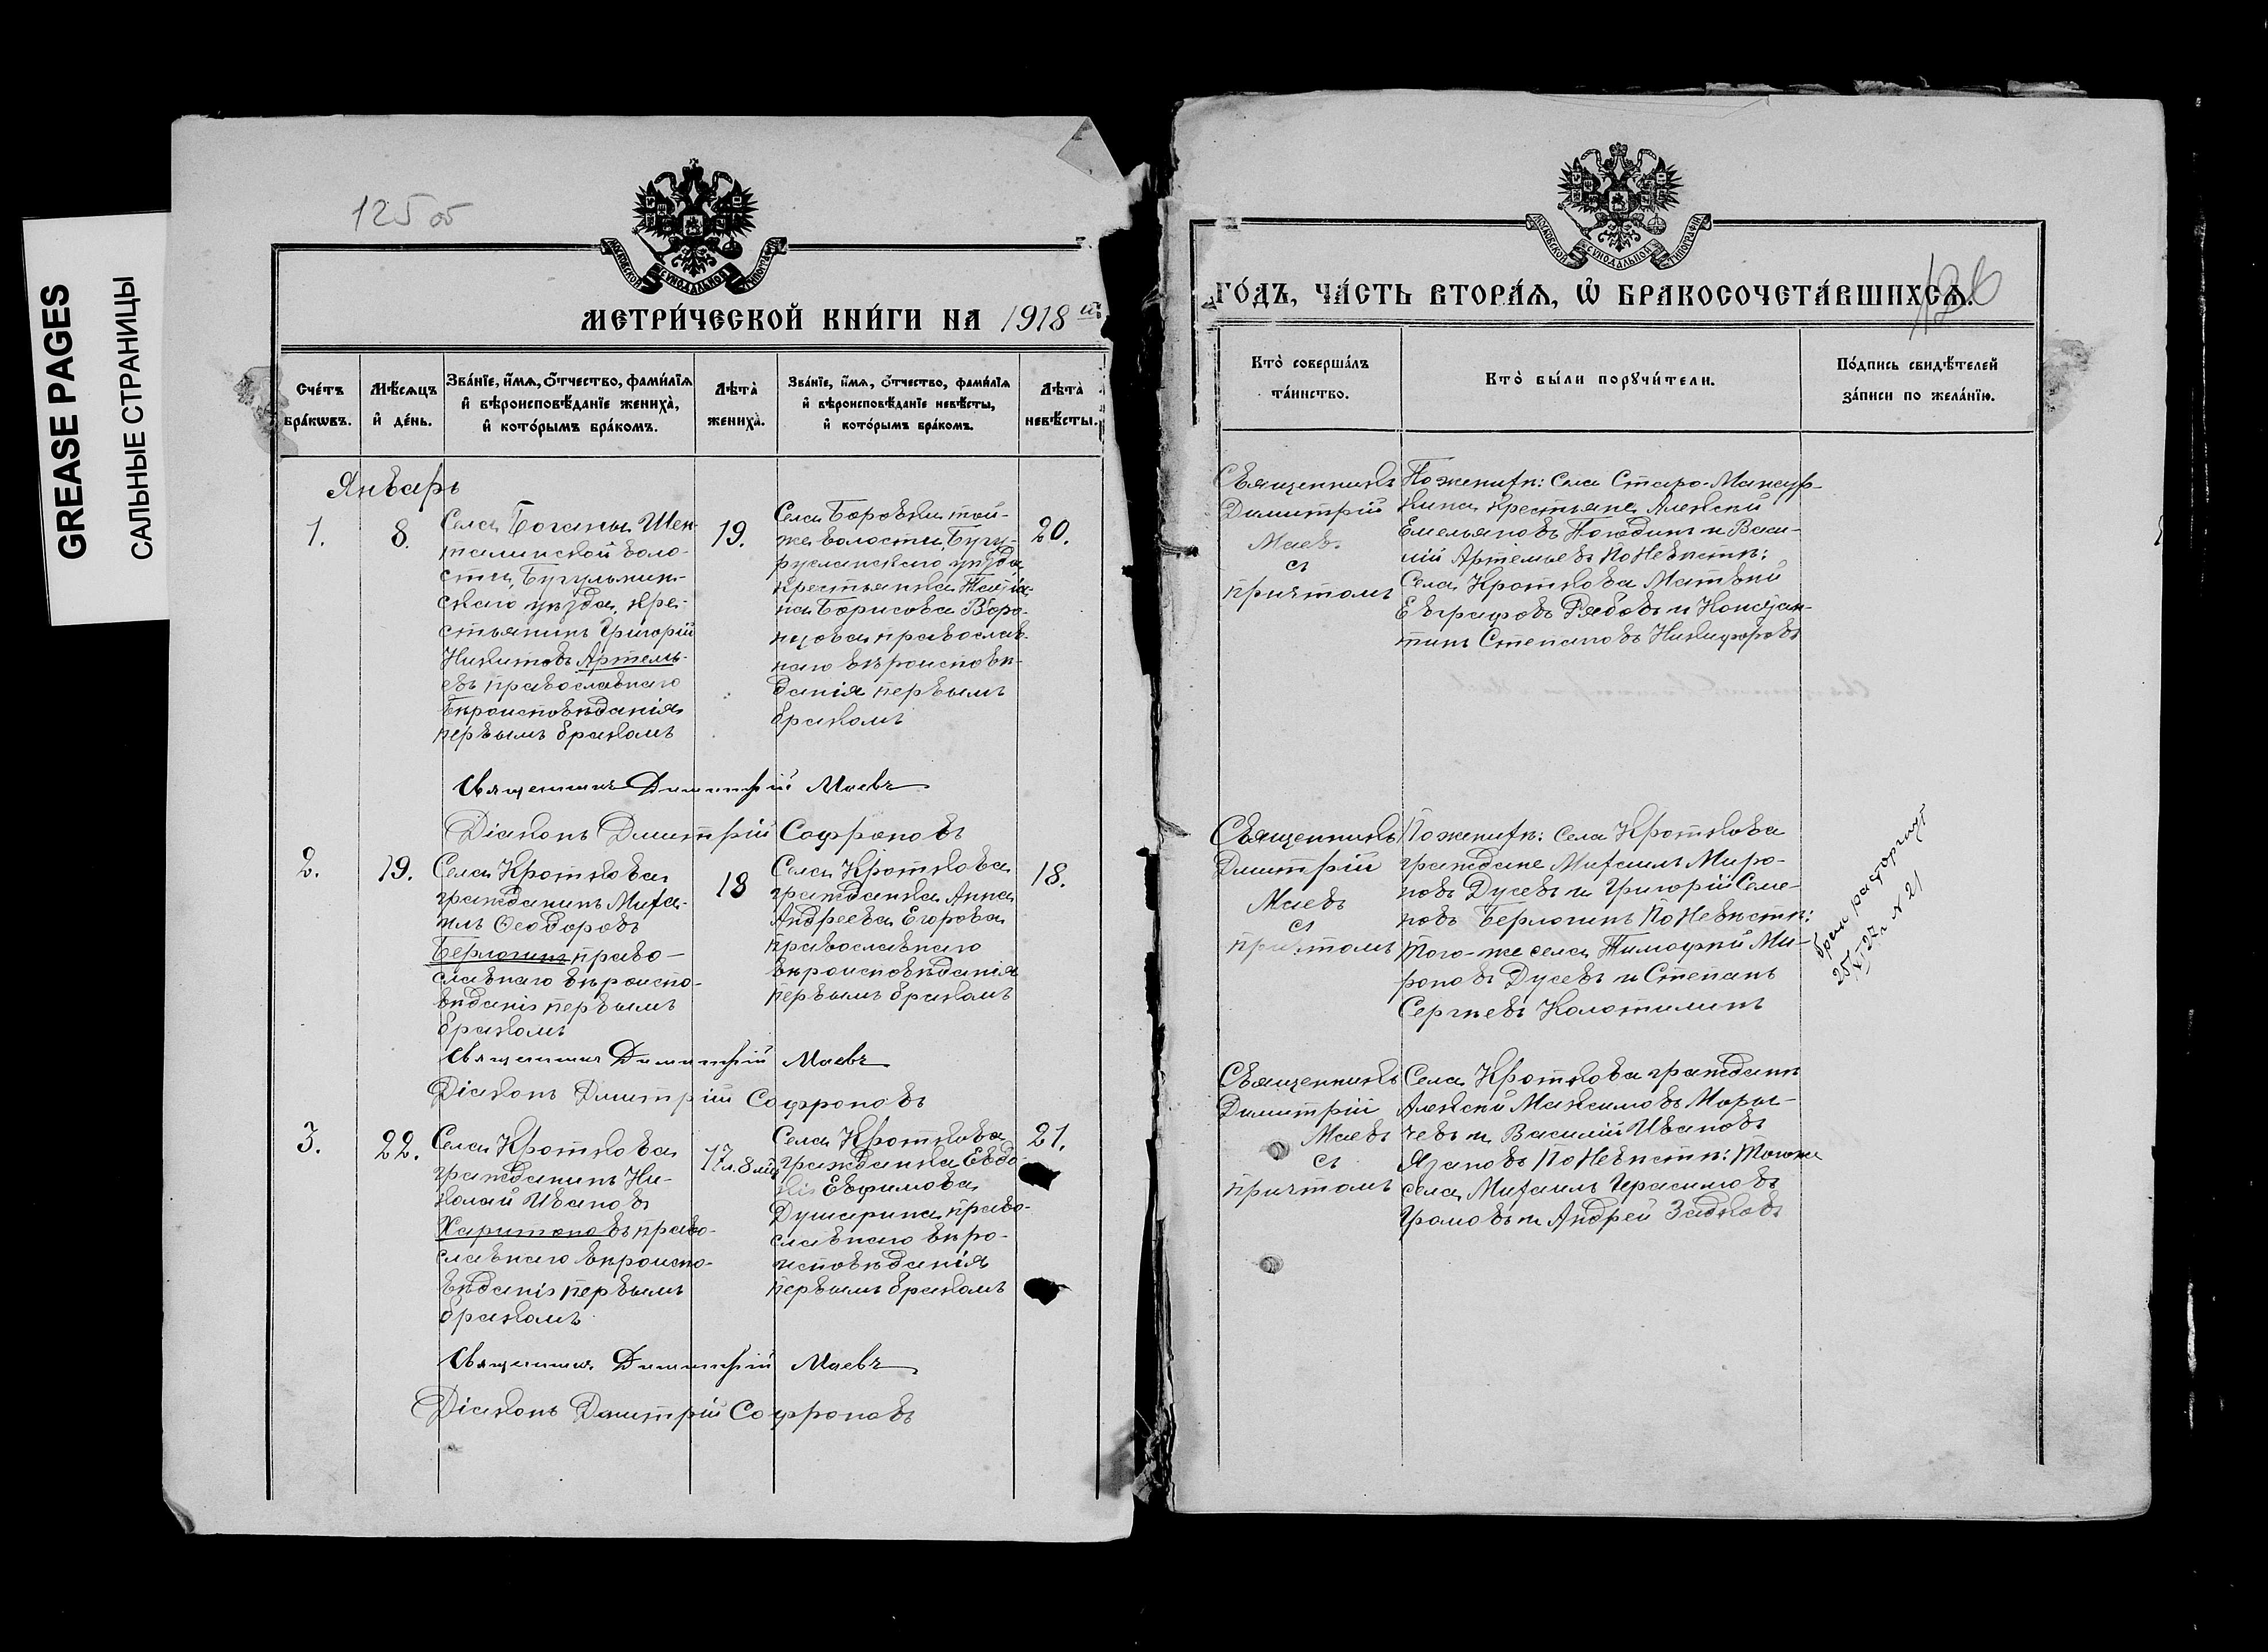 GREASE PAGES
САЛЬНЫЕ СТРАНИЦЫ
125 об
МОСКОВСКОЙ СѴНОДАЛЬНОЙ ТИПОГРАФІИ
МЕТРИ́ЧЕСКОЙ КНИ́ГИ НА 1918 й
Сче́тъ
бра́кѡвъ.
Мѣ́сѧцъ
и҆ де́нь.
Зва́нїе, и҆́мѧ, ѻ҆́тчество, фами́лїѧ
и҆ вѣроисповѣ́данїе жениха̀,
и҆ кото́рымъ бра́комъ.
Лѣта̀
жениха̀.
Зва́нїе, и҆́мѧ, ѻ҆́тчество, фами́лїѧ
и҆ вѣроисповѣ́данїе невѣ́сты,
и҆ кото́рымъ бра́комъ.
Лѣта̀
невѣ́сты.
Январь
1.
8.
Села Боганы Шен-
талинской воло-
сти, Бугульмин-
скаго уѣзда, кре-
стьянинъ Григорій
Никитовъ Артемь-
евъ православнаго
вѣроисповѣданія
первымъ бракомъ
19.
Села Боровки той-
же волости, Бугу-
русланскаго уѣзда
крестьянка Таисія
Борисова Воро-
нцова православ-
наго вѣроисповѣ-
данія первымъ
бракомъ
20.
Священникъ Димитрій Маевъ
Діаконъ Димитрій Софроновъ
2.
19.
Села Кротковка
гражданинъ Миха-
илъ Ѳеодоровъ
Берлогинъ право-
славнаго вѣроиспо-
вѣданія первымъ
бракомъ
18
Села Кротковка
гражданка Анна
Андреева Егорова
православнаго
вѣроисповѣданія
первымъ бракомъ
18.
Священникъ Димитрій Маевъ
Діаконъ Димитрій Софроновъ
3.
22.
Села Кротковка
гражданинъ Ни-
колай Ивановъ
Харитоновъ право-
славнаго вѣроиспо-
вѣданія первымъ
бракомъ
17 л. 8 мѣс
Села Кротковка
гражданка Евдо-
кія Евфимова
Душарина право-
славнаго вѣро-
исповѣданія
первымъ бракомъ
21.
Священникъ Димитрій Маевъ
Діаконъ Димитрій Софроновъ
МОСКОВСКОЙ СѴНОДАЛЬНОЙ ТИПОГРАФІИ
126
ГО́ДЪ, ЧА́СТЬ ВТОРА́Ѧ, Ѡ҆ БРАКОСОЧЕТА́ВШИХСѦ.
Кто̀ соверша́лъ
та́инство.
Кто̀ бы́ли порꙋчи́тели.
По́дпись свидѣ́телей
за́писи по жела́нїю.
Священникъ
Димитрій
Маевъ.
съ
причтомъ
По женихѣ: Села Старо-Мансур-
кина крестьяне Алексѣй
Емельяновъ Погодинъ и Васи-
лій Артемьевъ По Невѣстѣ:
Села Кроткова Матвѣй
Евграфовъ Рябовъ и Констан-
тинъ Степановъ Никифоровъ
Священникъ
Димитрій
Маевъ
съ
причтомъ
По женихѣ: Села Кроткова
граждане Михаилъ Миро-
новъ Дусевъ и Григорій Семе-
новъ Берлогинъ По Невѣстѣ:
того-же села Тимофей Ми-
роновъ Дусевъ и Степанъ
Сергѣевъ Колотилинъ
брак расторгнут
25/XI 27 г N 21
Священникъ
Димитрій
Маевъ
съ
причтомъ
Села Кроткова гражданѣ
Алексѣй Максимовъ Моры-
чевъ и Василій Ивановъ
Язановъ По Невѣстѣ: Тогоже
села Михаилъ Герасимовъ
Громовъ и Андрей Задковъ